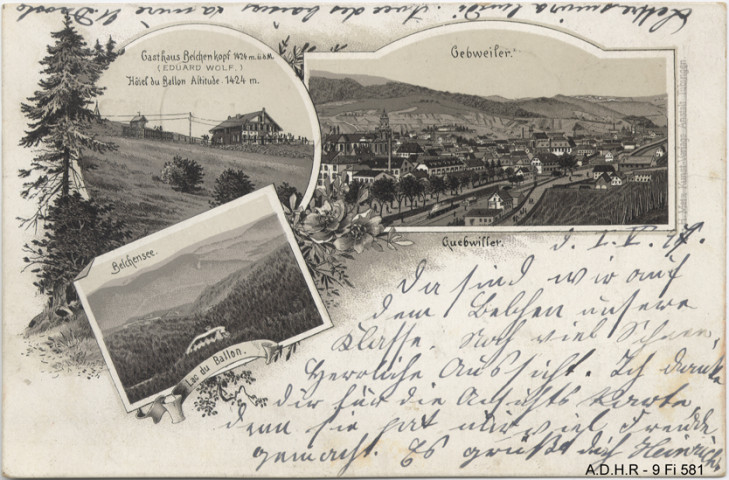 Gasthaus Belchenkopf 1424 m. ü.d.M.
(EDUARD WOLF.)
Hôtel du Ballon Altitude: 1424 m.
Gebweiler.
Guebwiller.
Belchensee.
Lac du Ballon.
d. 1. V. 97.
Da sind wir auf
dem Belchen unsere
Klasse. Noch viel Schnee,
Herrliche Aussicht. Ich danke
dir für die Ansichts Karte
denn sie hat mir viel Freude
gemacht. Es grüßt dich Heinrich
A.D.H.R - 9 Fi 581